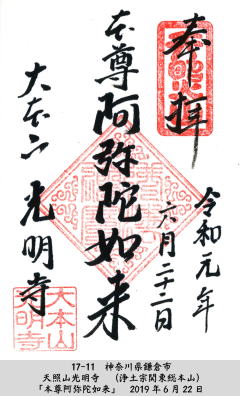 奉拝
令和元年
六月二十二日
本尊阿弥陀如来
大本山
光明寺
大本山
光明寺
17-11 神奈川県鎌倉市
天照山光明寺 （浄土宗関東総本山）
「本尊阿弥陀如来」 2019年6月22日